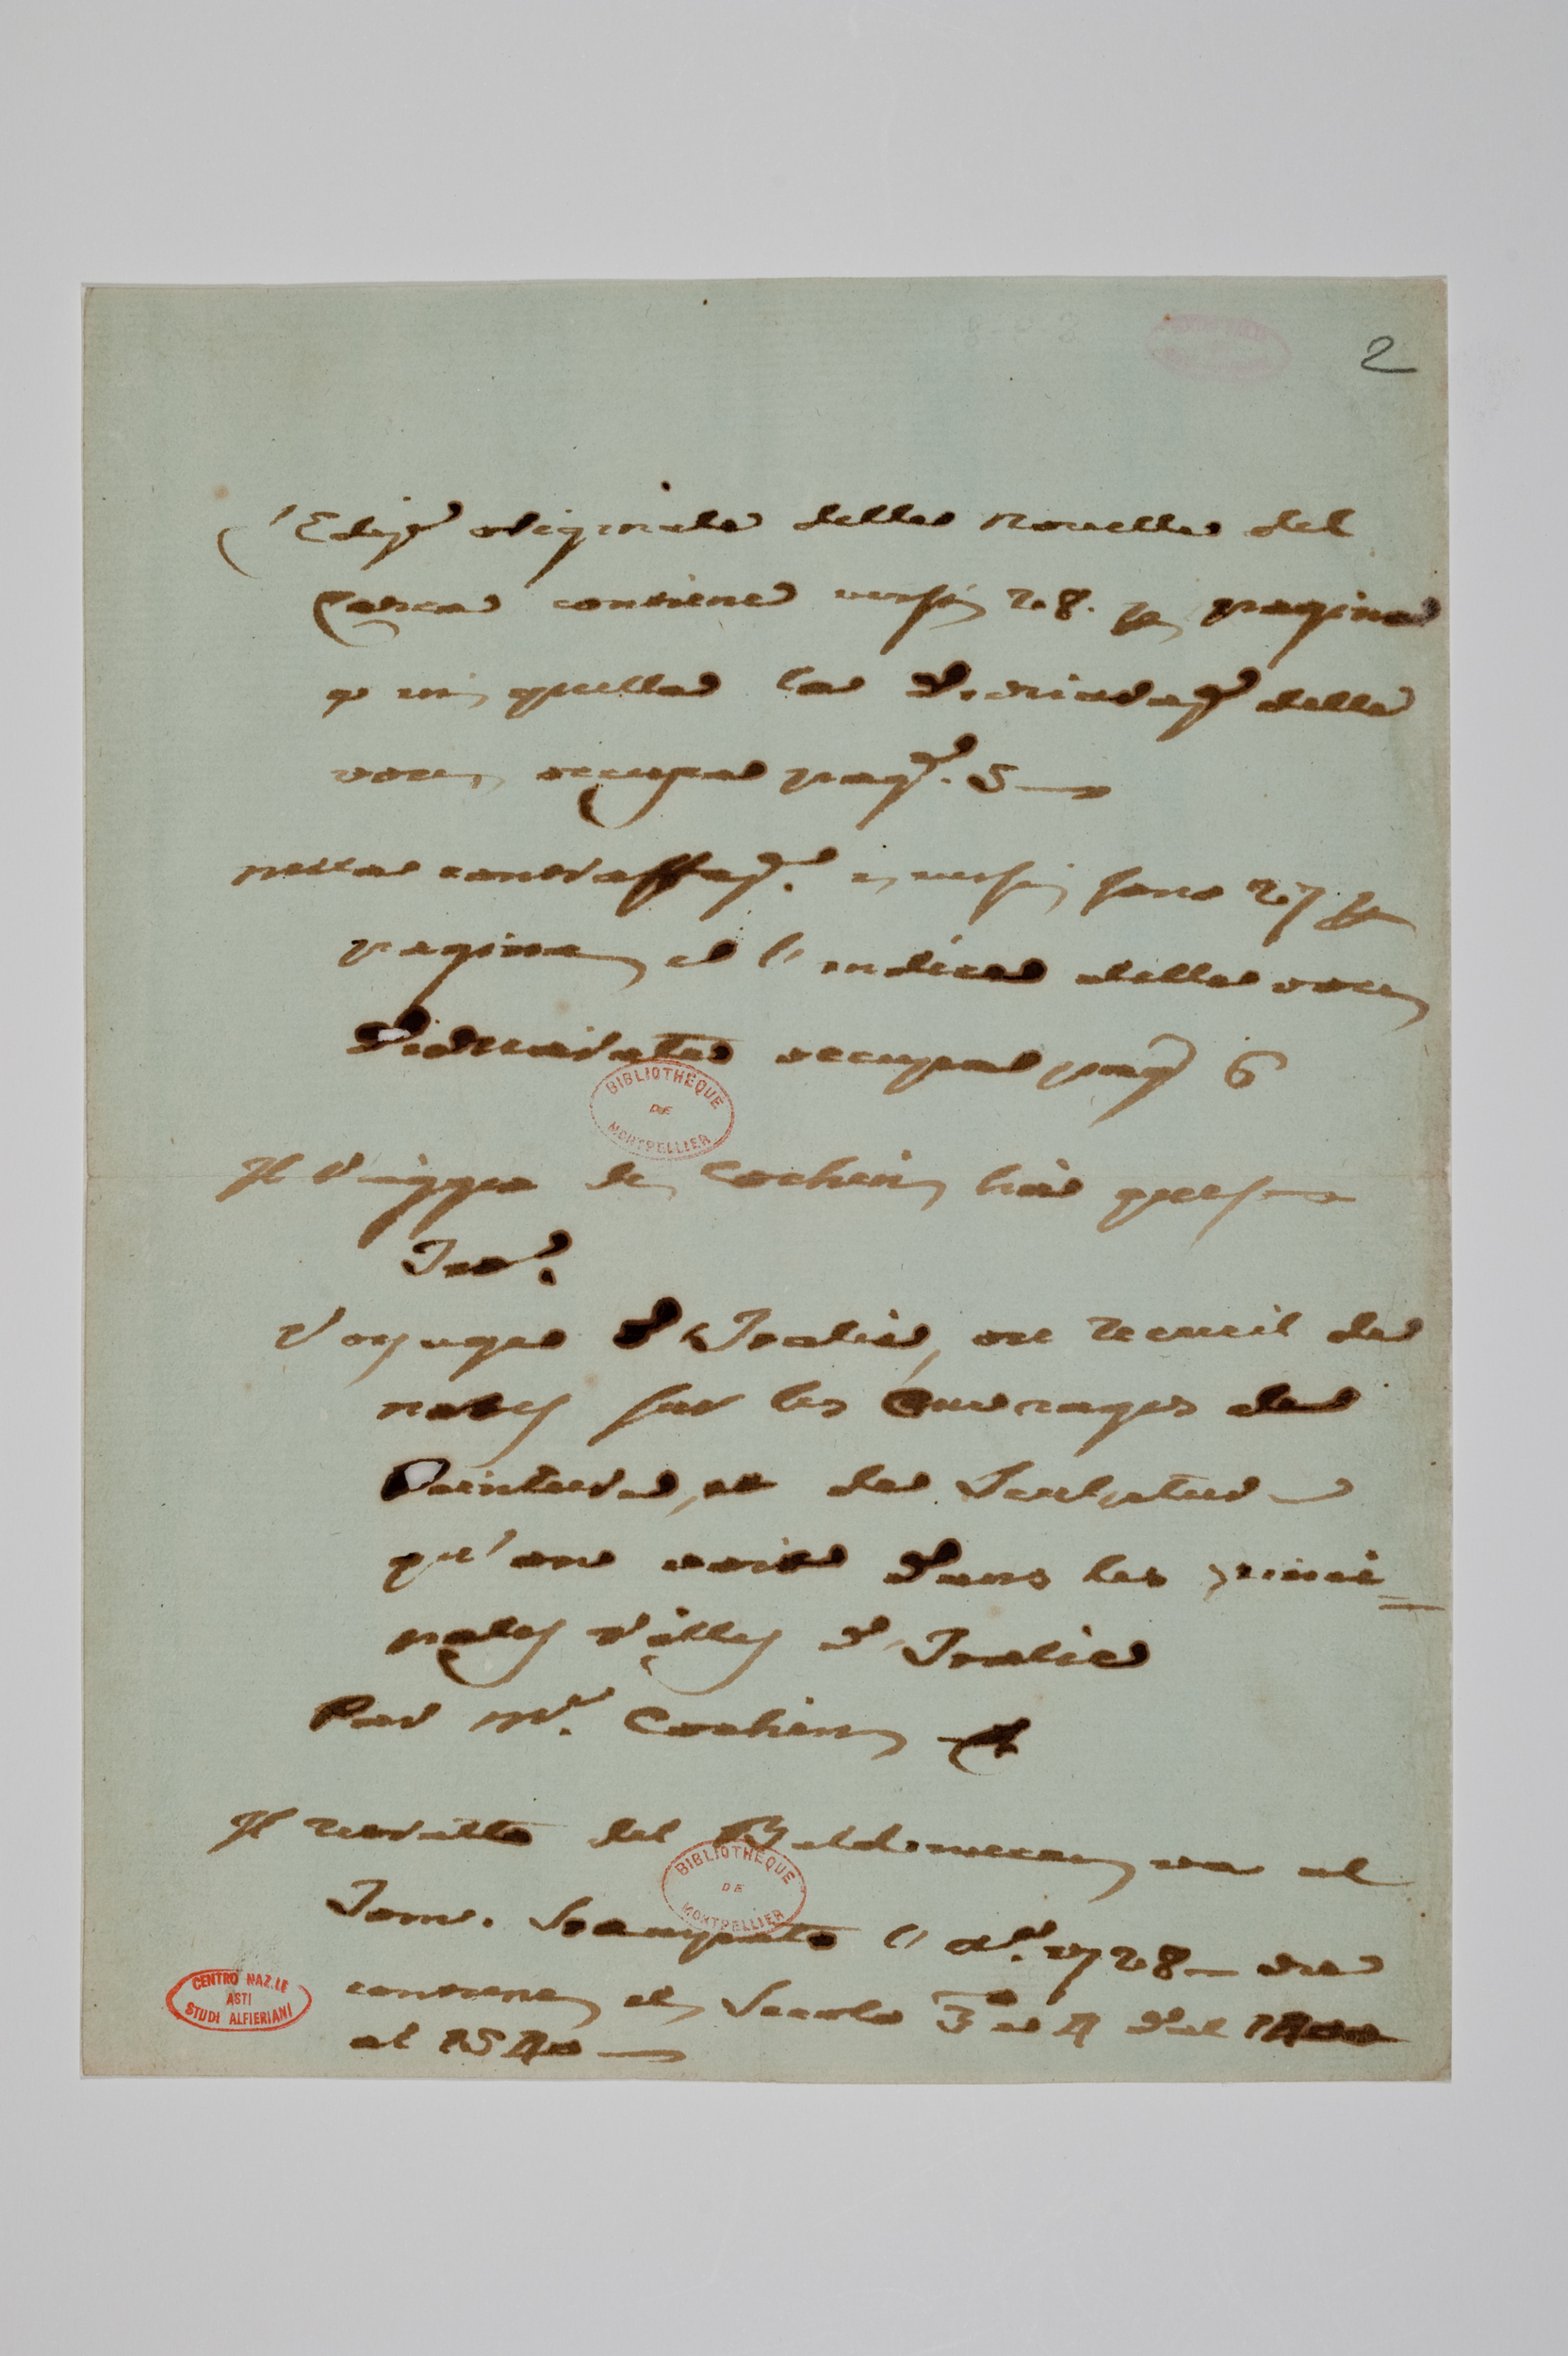 2
l'Ediz.e originale delle novelle del
Lasca contiene versi 28. per pagina
e in quella la Dichiaraz.e delle
voci occupa pag.e. 5
nella contraffaz.e i versi sono 27 per
pagina e l'indice delle voci
Dichiarate occupa pag. 6
BIBLIOTHEQUE
DE
MONTPELLIER
Il Viaggio di Cochin
Voyage d'Italie, ou recueil de
notes sur les Ouvrages de
Peinture, et de Sculpture
qu'on voit dans les princi=
pales Villes d'Italie
Par Mr. Cochin
Il ritratto del Baldinucci va al
Tomo. Stampato l'a.o 1728 che
contiene il Secolo 3 e 4 dal 1400
al 1540
BIBLIOTHEQUE
DE
MONTPELLIER
CENTRO NAZ.LE
ASTI
STUDI ALFIERIANI